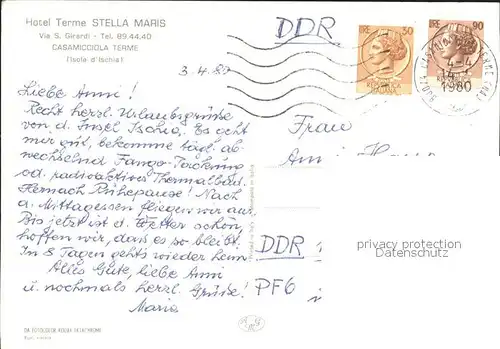 Hotel Terme STELLA MARIS
Via S. Girardi - Tel. 89.44.40
CASAMICCIOLA TERME
(Isola d'Ischia)
DDR
LIRE 50
LIRE 90
4-4
1980
3.4.80
Liebe Anni!
Recht herzl. Urlaubsgrüße
von d. Insel Ischia. Es geht
mir gut, bekomme tägl. ab-
wechselnd Fango-Packung
od. radioaktives Thermalbad.
Hernach Ruhepause! Nach
d. Mittagessen fliegen wir aus.
Bis jetzt ist d. Wetter schön,
hoffen wir, dass es so bleibt.
In 8 Tagen gehts wieder heim
Alles Gute, liebe Anni
u. nochmals herzl. Grüße!
Maria
Frau
DDR
PF6
privacy protection
Datenschutz